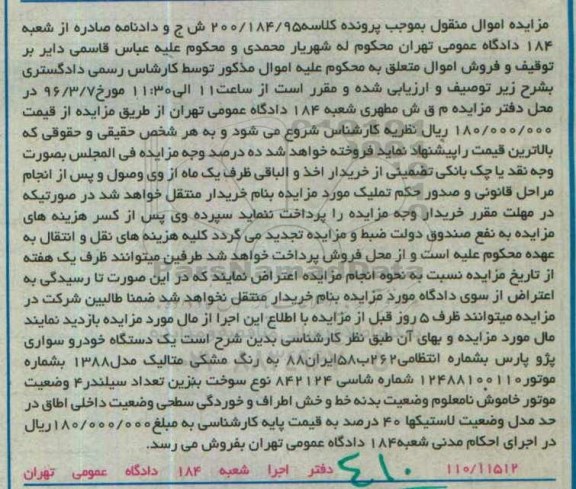 مزایده اموال منقول بموجب پرونده کلاسه۲۰۰/۱۸۴/۹۵ ش ج و دادنامه صادره از شعبه
۱۸۴ دادگاه عمومی تهران محکوم له شهریار محمدی و محکوم علیه عباس قاسمی دایر بر
توقیف و فروش اموال متعلق به محکوم علیه اموال مذکور توسط کارشناس رسمی دادگستری
بشرح زیر توصیف و ارزیابی شده و مقرر است از ساعت۱۱ الی۱۱:۳۰ مورخ۹۶/۳/۷ در
محل دفتر مزایده م ق ش مطهری شعبه ۱۸۴ دادگاه عمومی تهران از طریق مزایده از قیمت
۱۸۰/۰۰۰/۰۰۰ ریال نظریه کارشناس شروع می شود و به هر شخص حقیقی و حقوقی که
بالاترین قیمت راپیشنهاد نماید فروخته خواهد شد ده درصد وجه مزایده فی المجلس بصورت
وجه نقد یا چک بانکی تضمینی از خریدار اخذ و الباقی ظرف یک ماه از وی وصول و پس از انجام
مراحل قانونی و صدور حکم تملیک مورد مزایده بنام خریدار منتقل خواهد شد در صورتیکه
در مهلت مقرر خریدار وجه مزایده را پرداخت ننماید سپرده وی پس از کسر هزینه های
مزایده به نفع صندوق دولت ضبط و مزایده تجدید می گردد کلیه هزینه های نقل و انتقال به
عهده محکوم علیه است و از محل فروش پرداخت خواهد شد طرفین میتوانند ظرف یک هفته
از تاریخ مزایده نسبت به نحوه انجام مزایده اعتراض نمایند که در این صورت تا رسیدگی به
اعتراض از سوی دادگاه مورد مزایده بنام خریدار منتقل نخواهد شد ضمنا طالبین شرکت در
مزایده میتوانند ظرف ۵ روز قبل از مزایده با اطلاع این اجرا از مال مورد مزایده بازدید نمایند
مال مورد مزایده و بهای آن طبق نظر کارشناسی بدین شرح است یک دستگاه خودرو سواری
پژو پارس بشماره انتظامی۲۶۲ب۵۸ایران۸۸ به رنگ مشکی متالیک مدل۱۳۸۸ بشماره
موتور۱۲۴۸۸۱۰۰۱۱۰ شماره شاسی ۸۴۲۱۲۴ نوع سوخت بنزین تعداد سیلندر۴ وضعیت
موتور خاموش نامعلوم وضعیت بدنه خط و خش اطراف و خوردگی سطحی وضعیت داخلی اطاق در
حد مدل وضعیت لاستیکها ۴۰ درصد به قیمت پایه کارشناسی به مبلغ۱۸۰/۰۰۰/۰۰۰ریال
در اجرای احکام مدنی شعبه۱۸۴ دادگاه عمومی تهران بفروش می رسد.
۱۱۰/۱۱۵۱۲ دفتر اجرا شعبه ۱۸۴ دادگاه عمومی تهران